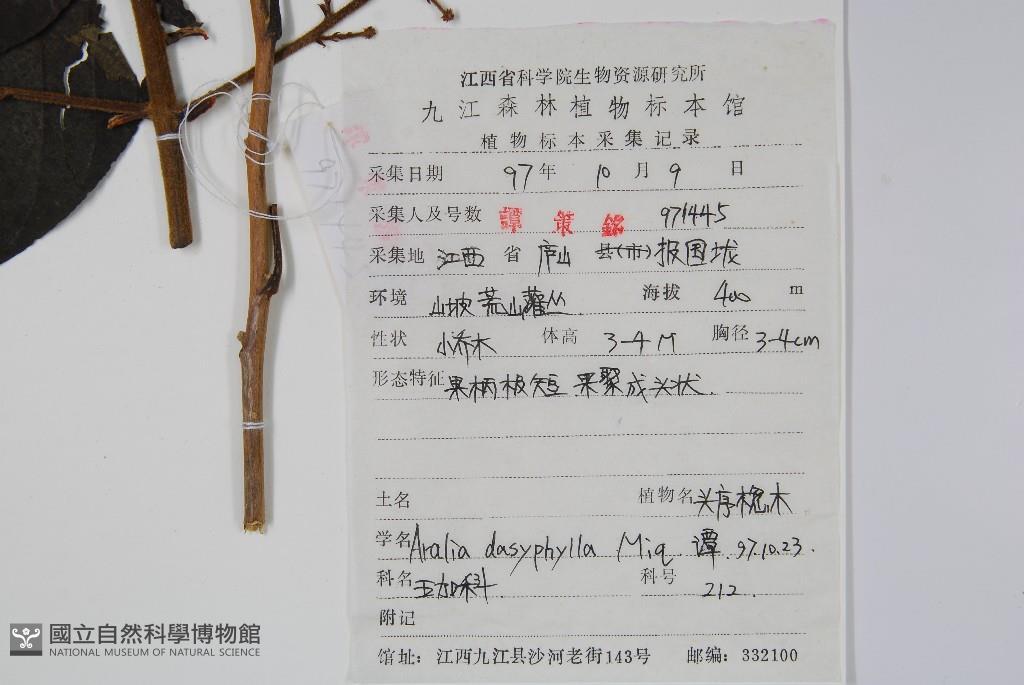 江西省科学院生物资源研究所
九江森林植物标本馆
植物标本采集记录
采集日期 97年 10月 9日
采集人及号数 譚策銘 971445
采集地 江西 省 庐山 县(市) 报国垅
环境 山坡荒山灌丛 海拔 400 m
性状 小乔木 体高 3-4M 胸径 3-4cm
形态特征 果柄极短 果聚成头状.
土名 植物名 头序楤木
学名 Aralia dasyphylla Miq 谭 97.10.23.
科名 五加科. 科号 212.
附记
馆址: 江西九江县沙河老街143号 邮编: 332100
國立自然科學博物館
NATIONAL MUSEUM OF NATURAL SCIENCE